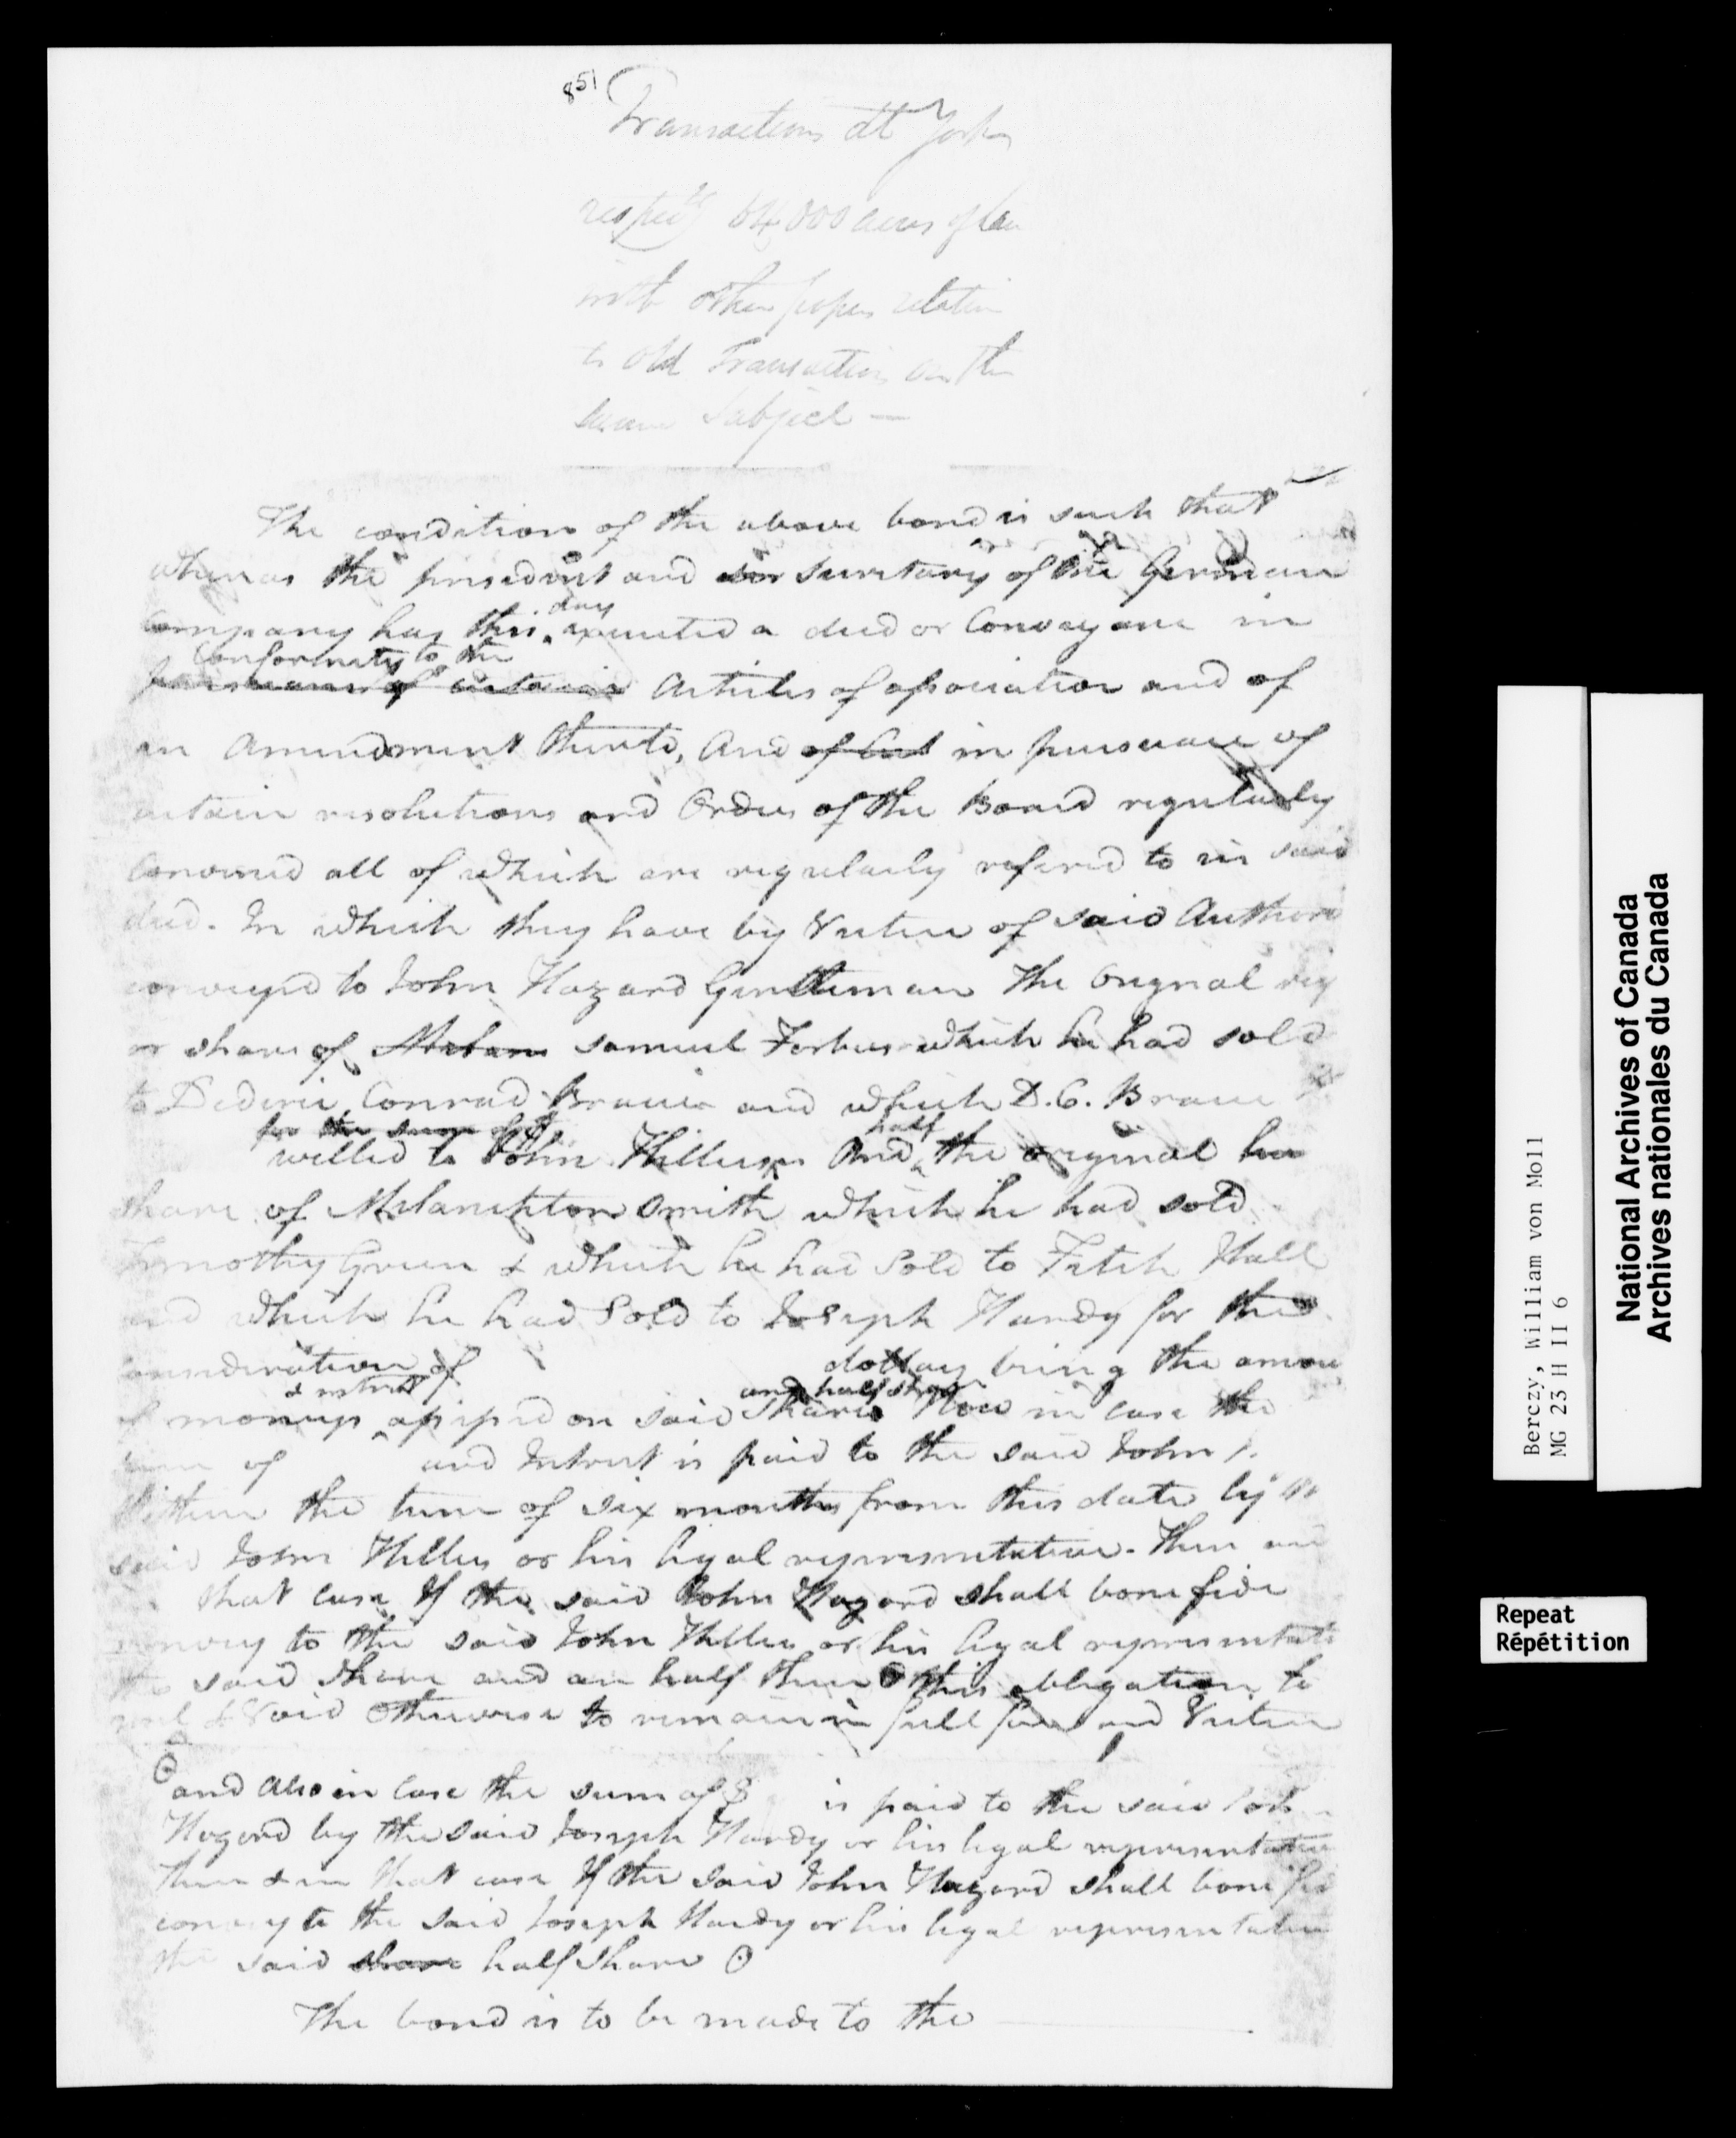 851
Transactions at York
respectg 64,000 acres of lan
with other papers relatin
to old Transaction on the
same Subject —
The condition of the above bond is such that
whereas the president and secretary of the German
Company has this day executed a deed or Conveyance in
Conformity to the
pursuance of certain Articles of association and of
an Amendment thereto, And of And in pursuance of
certain resolutions and Orders of the Board regularly
Convened all of which are regularly refered to in said
deed. In which they have by Virtue of said Authori
conveyed to John Hazard Gentleman The Orignal rig
or share of Melan Samuel Forbus which he had sold
to Dederic Conrad Brauer and which D. C. Braue
for the sum of
selled to John Hillers And half the original
share of Melanchton Smith which he had sold
Timothy Green & which he had Sold to Fitch Hall
and which he had Sold to Joseph Hardy for the
consideration of dollars being the amou
of moneys & intrest assessed on said Share and half share Now in case the
sum of and Intrest is paid to the said John H.
Within the term of six months from this date by the
said John Hilles or his legal representative. Then and
that case If the said John Hazard shall bone fide
convey to the said John Hilles or his legal representati
the said share and an half then this obligation to
null & Void Otherwise to remain in full force and Virtue
and Also in Case the sum of $ is paid to the said Joh
Hogard by the said Joseph Hardy or his legal representative
then & in that case If the said John Hazard shall bone fid
convey to the said Joseph Hardy or his legal representative
the said share half Share
The bond is to be made to the
Berczy, William von Moll
MG 23 H II 6
National Archives of Canada
Archives nationales du Canada
Repeat
Répétition